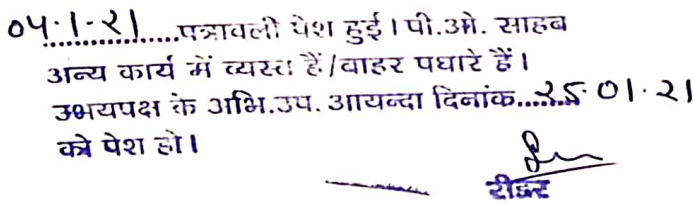 04.1.21......पत्रावली पेश हुई। पी.ओ. साहब
अन्य कार्य में व्यस्त हैं/बाहर पधारे हैं।
उभयपक्ष के अभि.उप. आयन्दा दिनांक......25.01.21
को पेश हो।
रीडर